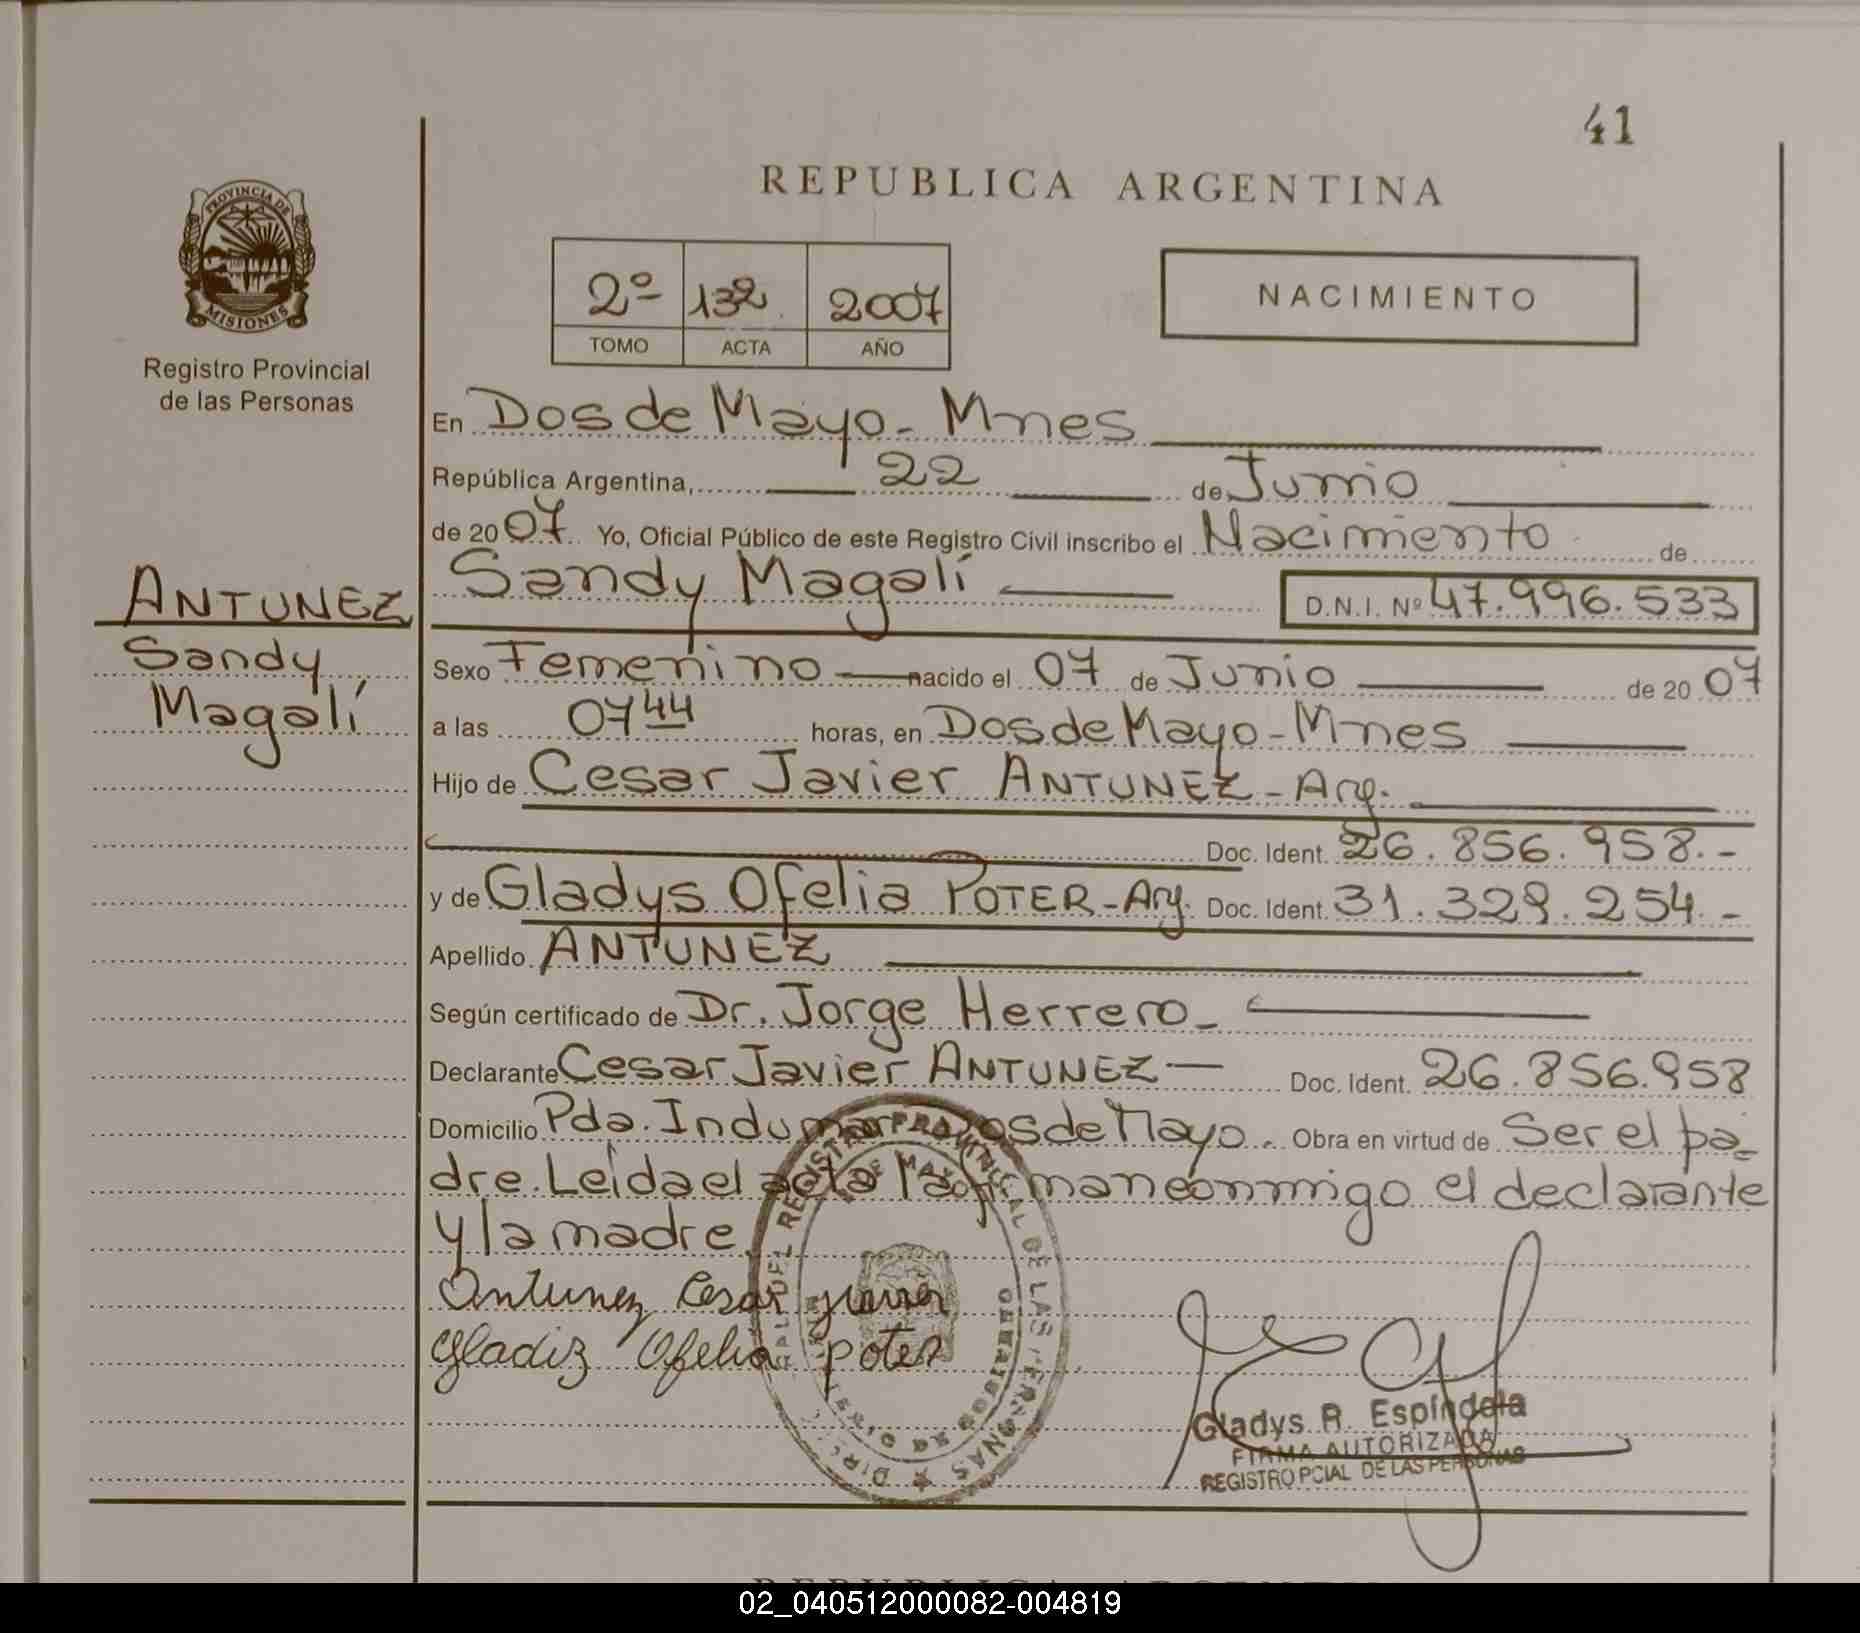 41
REPUBLICA ARGENTINA
PROVINCIA DE
MISIONES
Registro Provincial
de las Personas
2º 132 2007
TOMO ACTA AÑO
NACIMIENTO
En Dos de Mayo - Mnes
República Argentina, 22 de Junio
de 2007 Yo, Oficial Público de este Registro Civil inscribo el Nacimiento de
Sandy Magalí D.N.I. Nº 47.996.533
ANTUNEZ
Sandy
Magalí
Sexo Femenino nacido el 07 de Junio de 2007
a las 07 44 horas, en Dos de Mayo - Mnes
Hijo de Cesar Javier ANTUNEZ - Arg.
Doc. Ident. 26.856.958.-
y de Gladys Ofelia POTER - Arg. Doc. Ident. 31.329.254.-
Apellido ANTUNEZ
Según certificado de Dr. Jorge Herrero -
Declarante Cesar Javier ANTUNEZ — Doc. Ident. 26.856.958
Domicilio Pda. Indumar Dos de Mayo. Obra en virtud de Ser el pa-
dre. Leída el acta la firman conmigo el declarante
y la madre.
Antunez Cesar
Gladiz Ofelia poter
REGISTRO PROVINCIAL DE LAS PERSONAS
Gladys R. Espíndola
FIRMA AUTORIZADA
REGISTRO PCIAL DE LAS PERSONAS
02_040512000082-004819